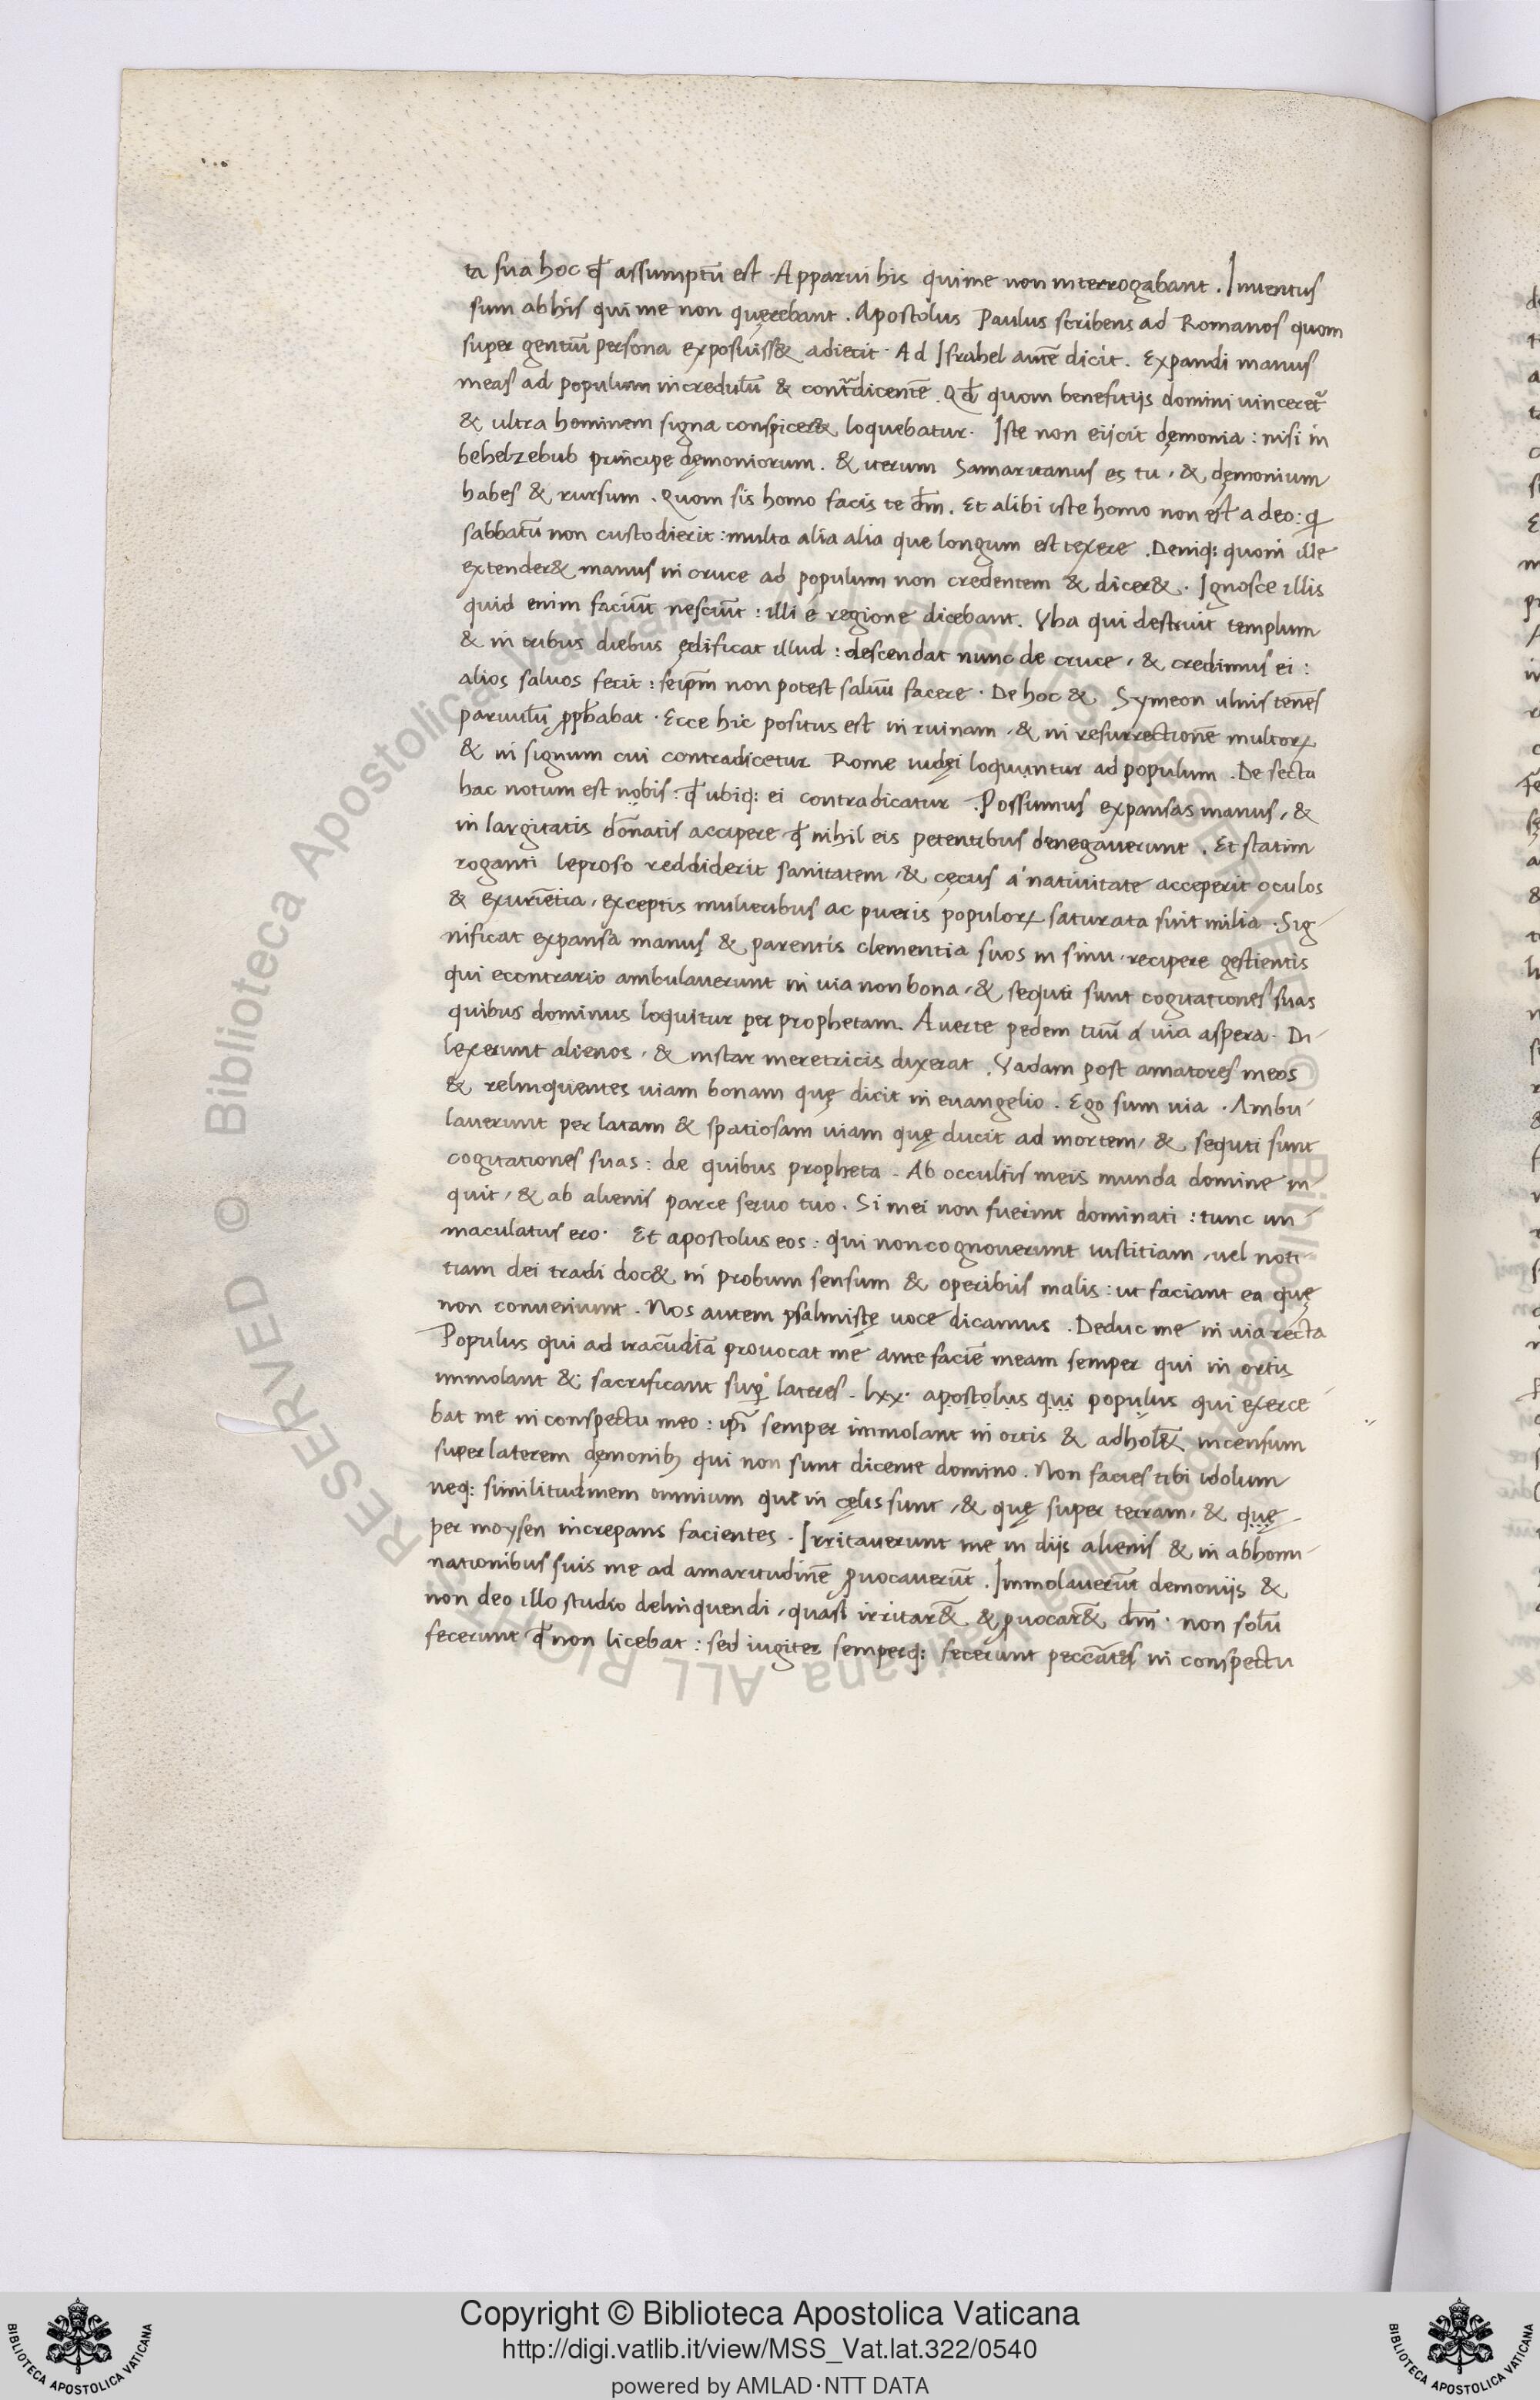 ta sua hoc qđ assumptū est. Apparui his qui me non interrogabant. Inuentus
sum ab his qui me non quęrebant. Apostolus Paulus scribens ad Romanos quom
super gentiū persona exposuiss& adiecit. Ad Israhel autē dicit. Expandi manus
meas ad populum incredulū & contradicentē. Qđ quom benefitijs domini uinceret
& ultra hominem signa conspicer& loquebatur. Iste non eijcit dęmonia: nisi in
behelzebub principe dęmoniorum. & iterum Samaritanus es tu, & dęmonium
habes & rursum. Quom sis homo facis te dm̄. Et alibi iste homo non est a deo: q
sabbatū non custodierit: multa alia alia que longum est texere. Deniq: quom ille
extender& manus in cruce ad populum non credentem & dicer&. Ignosce illis
quid enim faciūt nesciūt: illi é regione dicebant. Vha qui destruit templum
& in tribus diebus ędificat illud: descendat nunc de cruce, & credimus ei:
alios saluos fecit: seipm̄ non potest saluū facere. De hoc & Symeon ulnis tenēs
paruulū pphabat. Ecce hic positus est in ruinam, & in resurrectionē multorꝝ
& in signum cui contradicetur Rome iudęi loquuntur ad populum. De secta
hac notum est nobis: qđ ubiq: ei contradicatur. Possumus expansas manus, &
in largitatis donatis accipere qđ nihil eis petentibus denegauerunt. Et statim
roganti leproso reddiderit sanitatem, & cęcus a natiuitate acceperit oculos
& exuriētia, exceptis mulieribus ac pueris populorꝝ saturata sint milia. Sig-
nificat expansa manus & parentis clementia suos in sinu recipere gestientis
qui econtrario ambulauerunt in uia non bona, & sequti sunt cogitationes suas
quibus dominus loquitur per prophetam. Auerte pedem tuū á uia aspera. Di-
lexerunt alienos, & instar meretricis dixerat. Vadam post amatores meos
& relinquentes uiam bonam quę dicit in euangelio. Ego sum uia. Ambu-
lauerunt per latam & spatiosam uiam quę ducit ad mortem, & sequti sunt
cogitationes suas: de quibus propheta. Ab occultis meis munda domine in-
quit, & ab alienis parce seruo tuo. Si mei non fuerint dominati: tunc im-
maculatus ero. Et apostolus eos: qui non cognouerunt iustitiam, uel noti-
tiam dei tradi doc& in probum sensum & operibus malis: ut faciant ea quę
non conueniunt. Nos autem psalmistę uoce dicamus. Deduc me in uia recta
Populus qui ad iracūdiā prouocat me ante faciē meam semper qui in ortis
immolant & sacrificant sup lateres. lxx. apostolus qui populus qui exerce-
bat me in conspectu meo: ipī semper immolant in ortis & adhol& incensum
super laterem dęmonib; qui non sunt dicente domino. Non facies tibi idolum
neq: similitudinem omnium quę in cęlis sunt, & quę super terram, & quę
per moysen increpans facientes. Irritauerunt me in dijs alienis & in abhomi-
nationibus suis me ad amaritudinē ꝓuocauerūt. Immolauerūt demonijs &
non deo illo studio delinquendi, quasi irritar& & ꝓuocar& dm̄. non solū
fecerunt qđ non licebat: sed iugiter semperq: fecerunt peccātes in conspectu
Copyright © Biblioteca Apostolica Vaticana
http://digi.vatlib.it/view/MSS_Vat.lat.322/0540
powered by AMLAD·NTT DATA